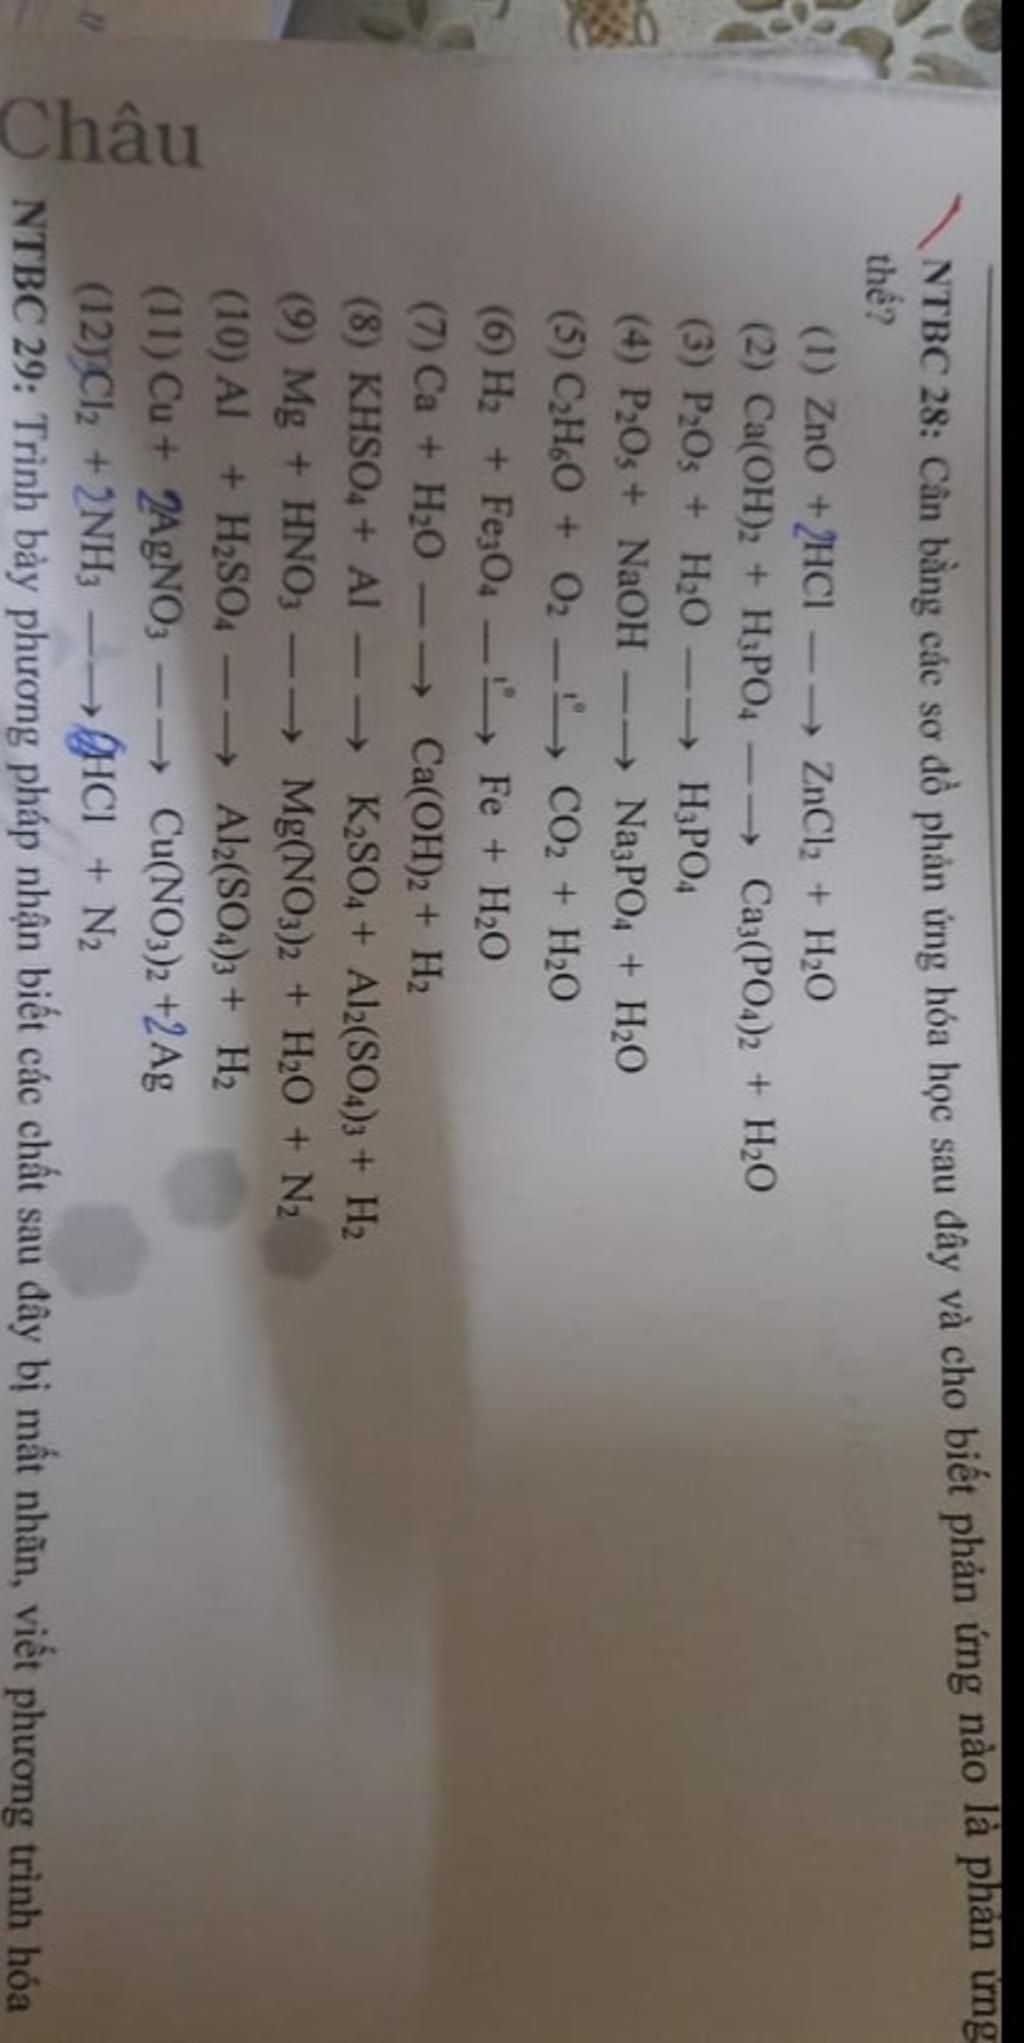 NTBC 28: Cân bằng các sơ đồ phản ứng hóa học sau đây và cho biết phản ứng nào là phản ứng
thế?
(1) ZnO + 2HCl — → ZnCl₂ + H₂O
(2) Ca(OH)₂ + H₃PO₄ — → Ca₃(PO₄)₂ + H₂O
(3) P₂O₅ + H₂O — → H₃PO₄
(4) P₂O₅ + NaOH — → Na₃PO₄ + H₂O
(5) C₂H₆O + O₂ — t° → CO₂ + H₂O
(6) H₂ + Fe₃O₄ — t° → Fe + H₂O
(7) Ca + H₂O — → Ca(OH)₂ + H₂
(8) KHSO₄ + Al — → K₂SO₄ + Al₂(SO₄)₃ + H₂
(9) Mg + HNO₃ — → Mg(NO₃)₂ + H₂O + N₂
(10) Al + H₂SO₄ — → Al₂(SO₄)₃ + H₂
(11) Cu + 2AgNO₃ — → Cu(NO₃)₂ + 2Ag
(12) Cl₂ + 2NH₃ — → HCl + N₂
Châu
NTBC 29: Trình bày phương pháp nhận biết các chất sau đây bị mất nhãn, viết phương trình hóa